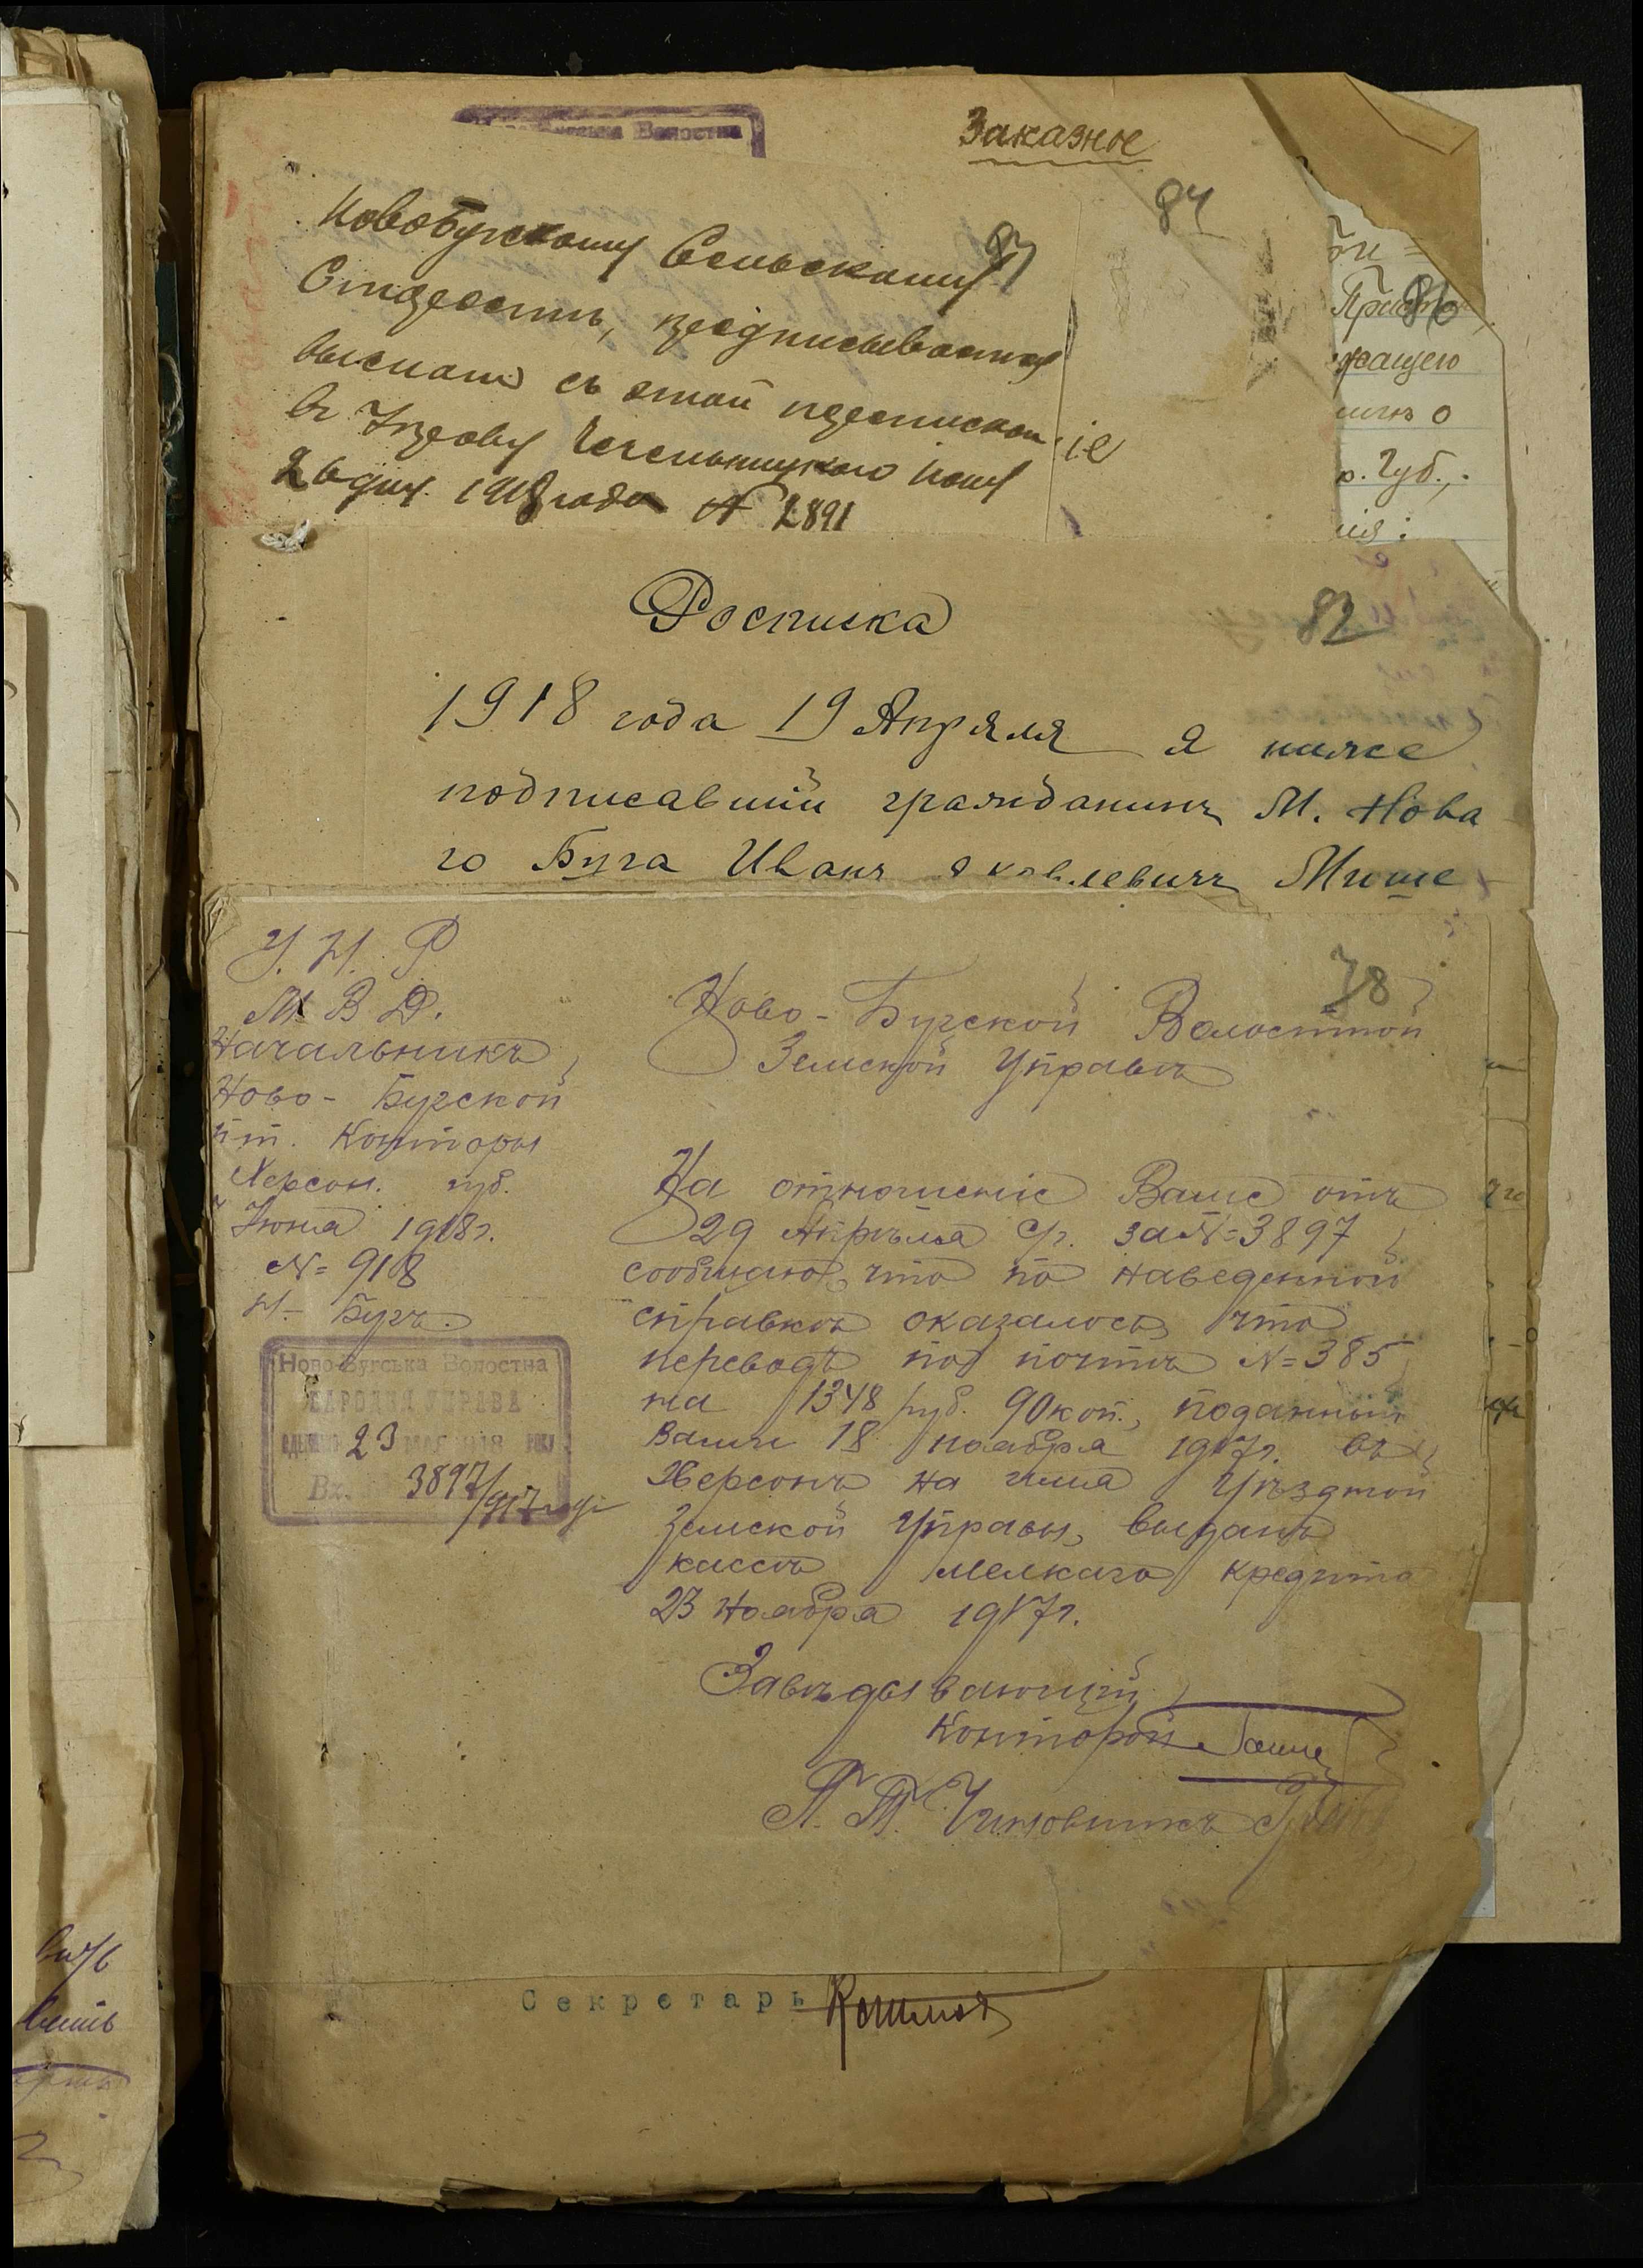 Волостна
Заказное
84
83
Новобугскому Сельскому
Старостѣ, предписывается
выслать съ этой перепиской
въ Управу
26 дня. 1918 года № 2891
іе
86
жащею
о. Губ.,
ія:
Росписка
82
1918 года 19 Апрѣля я ниже
подписавшій гражданинъ М. Нова
го Буга Иванъ Яковлевичъ Мише
У. Н. Р
М В Д.
Начальникъ
Ново-Бугской
п т. Конторы
Херсон. губ.
Іюня 1918 г.
№ 918
Н-Бугъ.
Ново-Бугська Волостна
НАРОДНА УПРАВА
23 МАЯ 1918 РОКУ
Вх. 3897/917
78
Ново-Бугской Волостной
Земской Управѣ
На отношеніе Ваше отъ
29 Апрѣля с/г. за № 3897
сообщаю, что по наведенной
справкѣ оказалось что
переводъ по почтѣ № 385
на 1348 руб. 90 коп., поданный
Вами 18 ноября 1917 г. въ
Херсонъ на имя Уѣздной
Земской Управы, выданъ
кассѣ мелкаго кредита
23 Ноября 1917 г.
Завѣдывающій
Конторой
П. Т. Чиновникъ
Секретарь